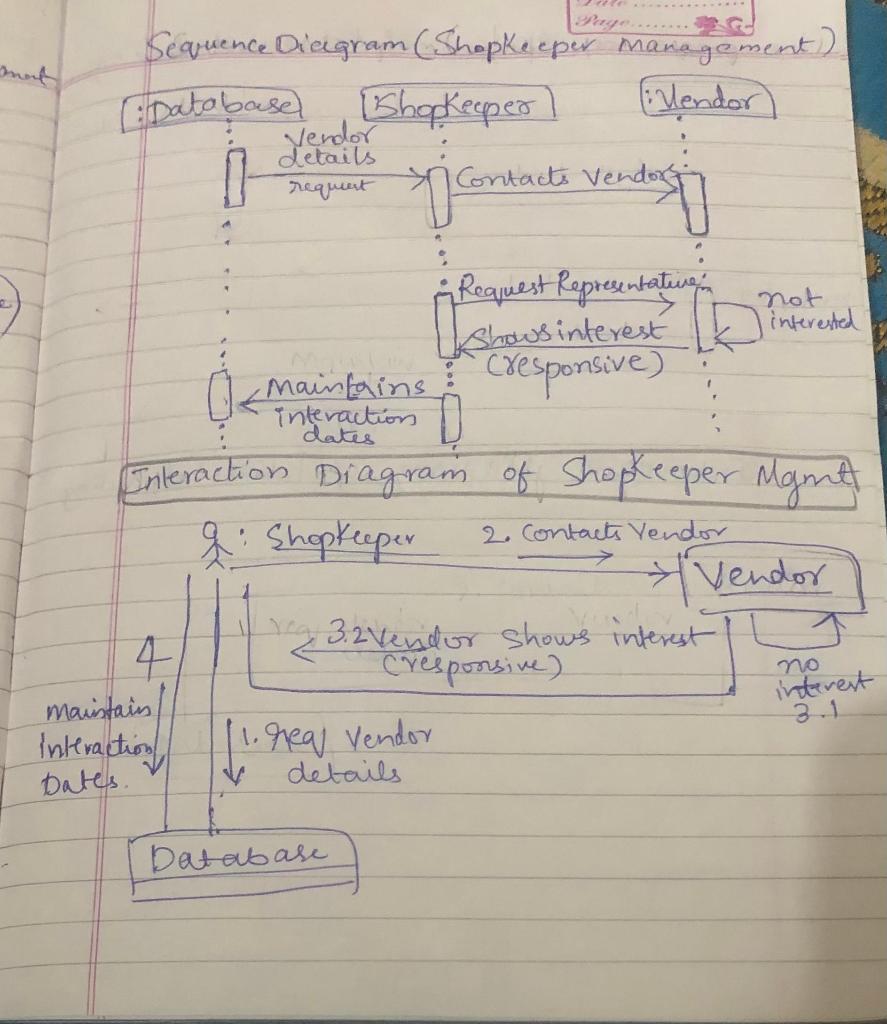 Date.......
Page..........
Sequence Diagram (Shopkeeper Management)
:Database :Shopkeeper :Vendor
Vendor
details
request
Contacts Vendor
Request Representative
not
interested
Shows interest
(responsive)
Maintains
interaction
dates
Interaction Diagram of Shopkeeper Mgmt
: Shopkeeper
2. Contacts Vendor
Vendor
3.2 Vendor shows interest
(responsive)
no
interest
3.1
4
Maintain
Interaction
Dates.
1. req Vendor
details
Database